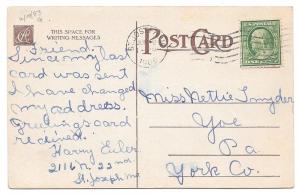 THIS SPACE FOR
WRITING MESSAGES
POST CARD
Friend.
Since my last
card was sent
I have changed
my address.
Greetings card
recieved.
Harry Eiler
2116 N 22nd
St Joseph Mo
Miss Nettie Snyder
Yoe
Pa
York Co.